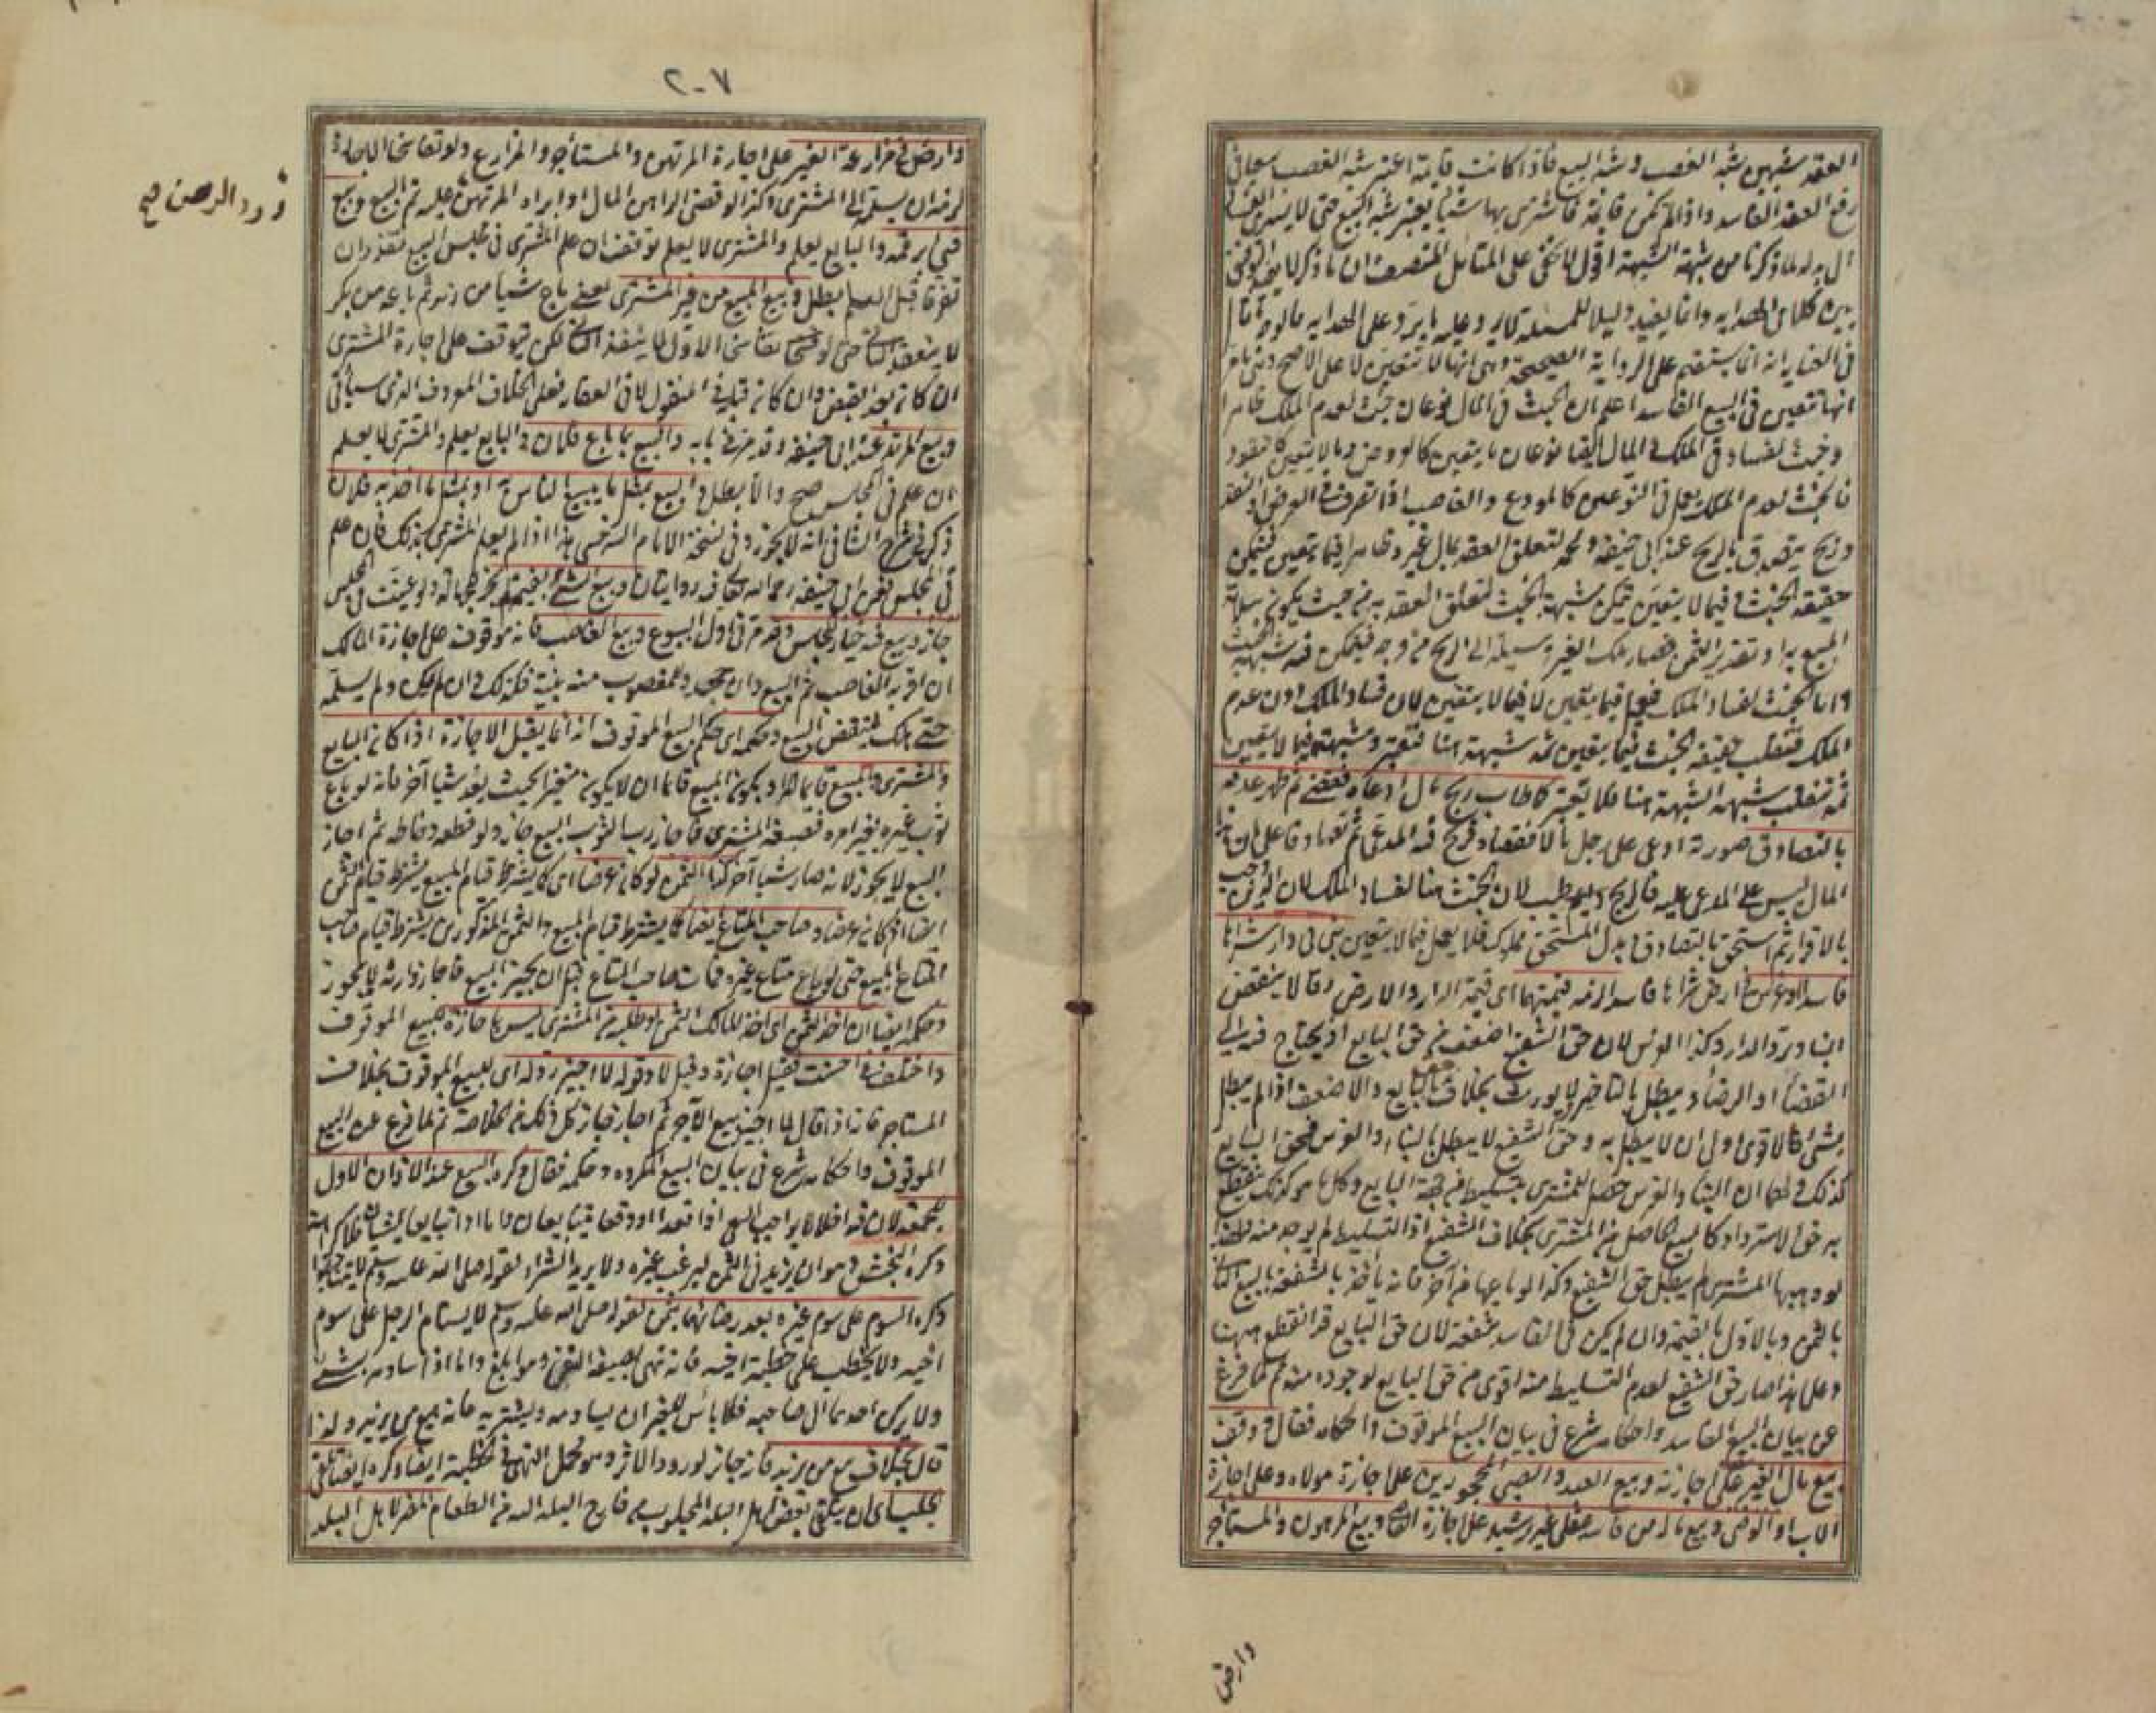 العقد شبهين شبه الغصب وشبه البيع فاذا كانت قايمة اعتبر شبه الغصب سعيا في
رفع العقد الفاسد واذا لم تكن قايمة فاشترى بها شيئا يعتبر شبه البيع حتى لا يسري الفساد
الى بدله لما ذكرنا من شبهة الشبهة اقول لا يخفى على المتأمل المنصف ان ما ذكر لا يفيد التوفيق
بين كلامي الهداية وانما يفيد دليلا للمسئلة
في العناية انه انما يستقيم على الرواية الصحيحة وهي انها لا تتعين لا على الاصح وهي ما مر
انها تتعين في البيع الفاسد اعلم ان الخبث في المال نوعان خبث لعدم الملك ظاهرا
وخبث لفساد في الملك والمال ايضا نوعان ما يتعين كالعروض وما لا يتعين كالنقود
فالخبث لعدم الملك يعمل في النوعين كالمودع والغاصب اذا تصرف في العرض او النقد
وربح يتصدق بالربح عند ابي حنيفة ومحمد لتعلق العقد بمال غيره ظاهرا فيما يتعين فتمكن
حقيقة الخبث وفيما لا يتعين تمكن شبهة الخبث لتعلق العقد به من حيث يكون سلامة
المبيع به او تقدير الثمن فصار ملك الغير وسيلة الى الربح من وجه فيتمكن فيه شبهة الخبث
واما الخبث لفساد الملك فيعمل فيما يتعين لا فيما لا يتعين لان فساد الملك دون عدم
الملك فتنقلب حقيقة الخبث فيما يتعين ثمة شبهة هنا فتعتبر وشبهته فيما لا يتعين
ثمة تنقلب شبهة الشبهة هنا فلا تعتبر كما طاب ربح مال ادعاه فقضى ثم ظهر عدمه
بالتصادق صورته ادعى على رجل مالا فقضاه فربح فيه المدعي ثم تصادقا على ان هذا
المال ليس على المدعى عليه فالربح له يطيب لان الخبث هنا لفساد الملك لان الدين وجب
بالاقرار ثم استحق بالتصادق وبدل المستحق مملوك فلا يعمل فيما لا يتعين بنى في دار شراها
فاسدا او غرس في ارض شراها فاسدا لزمه قيمتهما اي قيمة الدار والارض وقالا ينقض
البناء وترد الدار وكذا الغرس لان حق الشفيع اضعف من حق البايع اذ يحتاج فيه الى
القضاء او الرضاء ويبطل بالتاخير ولا يورث بخلاف حق البايع والاضعف اذا لم يبطل
بشيء فالاقوى اولى ان لا يبطل به وحق الشفيع لا يبطل بالبناء والغرس فحق البايع
كذلك ولهما ان البناء والغرس حصل للمشتري بتسليط من جهة البايع وكل ما هو كذلك ينقطع
به حق الاسترداد كالبيع الحاصل من المشتري بخلاف الشفيع اذ التسليط لم يوجد منه ولهذا
لو وهبها المشتري لم يبطل حق الشفيع وكذا لو باعها من آخر فانه يأخذ بالشفعة بالبيع الثاني
بالثمن وبالاول بالقيمة وان لم يكن في الفاسد شفعة لان حق البايع قد انقطع ههنا
وعلى هذا صار حق الشفيع لعدم التسليط منه اقوى من حق البايع لوجوده منه ثم لما فرغ
عن بيان البيع الفاسد واحكامه شرع في بيان البيع الموقوف واحكامه فقال وقف
بيع مال الغير على اجازته وبيع العبد والصبي المحجورين على اجازة مولاه وعلى اجازة
الاب او الوصي وبيع ماله من فاسد عقل غير رشيد على اجازة القاضي وبيع المرهون والمستأجر
وارض
٢٠٧
وارض في مزارعة الغير على اجازة المرتهن والمستأجر والمزارع ولو تفاسخا الاجارة
لزمه ان يسلمه الى المشتري وكذا لو قضى الراهن المال او ابراه المرتهن عليه تم البيع وبيع
شيء برقمه والبايع يعلم والمشتري لا يعلم توقف ان علم المشتري في مجلس البيع نفذ وان
تفرقا قبل العلم بطل وبيع المبيع من غير المشتري يعني باع شيئا من زيد ثم باعه من بكر
لا ينعقد الثاني حتى لو تفاسخا الاول لا ينفذ الثاني لكن يتوقف على اجازة المشتري
ان كان بعد القبض وان كان قبله في المنقول لا وفي العقار فعلى الخلاف المعروف الذي سيأتي
وبيع المرتد عند ابي حنيفة وقد مر في بابه والبيع بما باع فلان والبايع يعلم والمشتري لا يعلم
ان علم في المجلس صح والا بطل والبيع بمثل ما يبيع الناس او بمثل ما اخذ به فلان
ذكر في شرح الشافي انه لا يجوز وفي نسخة الامام السرخسي هذا اذا لم يعلم المشتري بذلك فان علم
في المجلس فعن ابي حنيفة رحمه الله تعالى فيه روايتان وبيع الشيء بقيمته لم يجز للجهالة ولو عينت في المجلس
جاز وبيع فيه خيار المجلس وقد مر في اول البيوع وبيع الغاصب فانه موقوف على اجازة المالك
ان اقر به الغاصب تم البيع وان جحد وللمغصوب منه بينة فكذلك وان لم يكن ولم يسلمه
حتى هلك انتقض البيع وحكمه اي حكم البيع الموقوف انه انما يقبل الاجازة اذا كان البايع
والمشتري والمبيع قايما المراد بكون المبيع قايما ان لا يكون متغيرا بحيث يعد شيئا آخر فانه لو باع
ثوب غيره بغير امره فصبغه المشتري فاجاز رب الثوب البيع جاز ولو قطعه وخاطه ثم اجاز
البيع لا يجوز لانه صار شيئا آخر كذا الثمن لو كان عرضا اي كما يشترط قيام المبيع يشترط قيام الثمن
ايضا اذا كان عرضا وصاحب المتاع ايضا كما يشترط قيام المبيع والثمن المذكورين يشترط قيام صاحب
المتاع المبيع حتى لو باع متاع غيره فمات صاحب المتاع قبل ان يجيز البيع فاجاز وارثه لا يجوز
وحكمه ايضا ان اخذ الثمن اي اخذ المالك الثمن او طلبه من المشتري ليس باجازة للبيع الموقوف
واختلف في احسنت فقيل اجازة وقيل لا وقوله لا اجيز رد له اي للبيع الموقوف بخلاف
المستأجر فانه اذا قال لا اجيز بيع الآجر ثم اجاز جاز كل ذلك من الخلاصة ثم لما فرغ عن البيع
الموقوف واحكامه شرع في بيان البيع المكروه وحكمه فقال وكره البيع عند الاذان الاول
للجمعة لان فيه اخلالا بواجب السعي اذا قعدا او وقفا يتبايعان واما اذا تبايعا يمشيان فلا كراهة
وكره النجش وهو ان يزيد في الثمن ليرغب غيره ولا يريد الشراء لقوله صلى الله عليه وسلم لا تناجشوا
وكره السوم على سوم غيره بعد رضائهما بثمن لقوله صلى الله عليه وسلم لا يستام الرجل على سوم
اخيه ولا يخطب على خطبة اخيه فانه نهى بصيغة النفي وهو ابلغ واما اذا ساومه بشيء
ولا يركن احدهما الى صاحبه فلا بأس للغير ان يساومه ويشتريه فانه بيع من يزيد ولذا
قال بخلاف بيع من يزيد فانه جائز لورود الاثر وهو محمل النهي في الخطبة ايضا وكره ايضا تلقي
الجلب اي ان يتلقى بعض اهل البلد المجلوب من خارج البلد اليه من الطعام المضر لاهل البلد
ورد الرهن صح